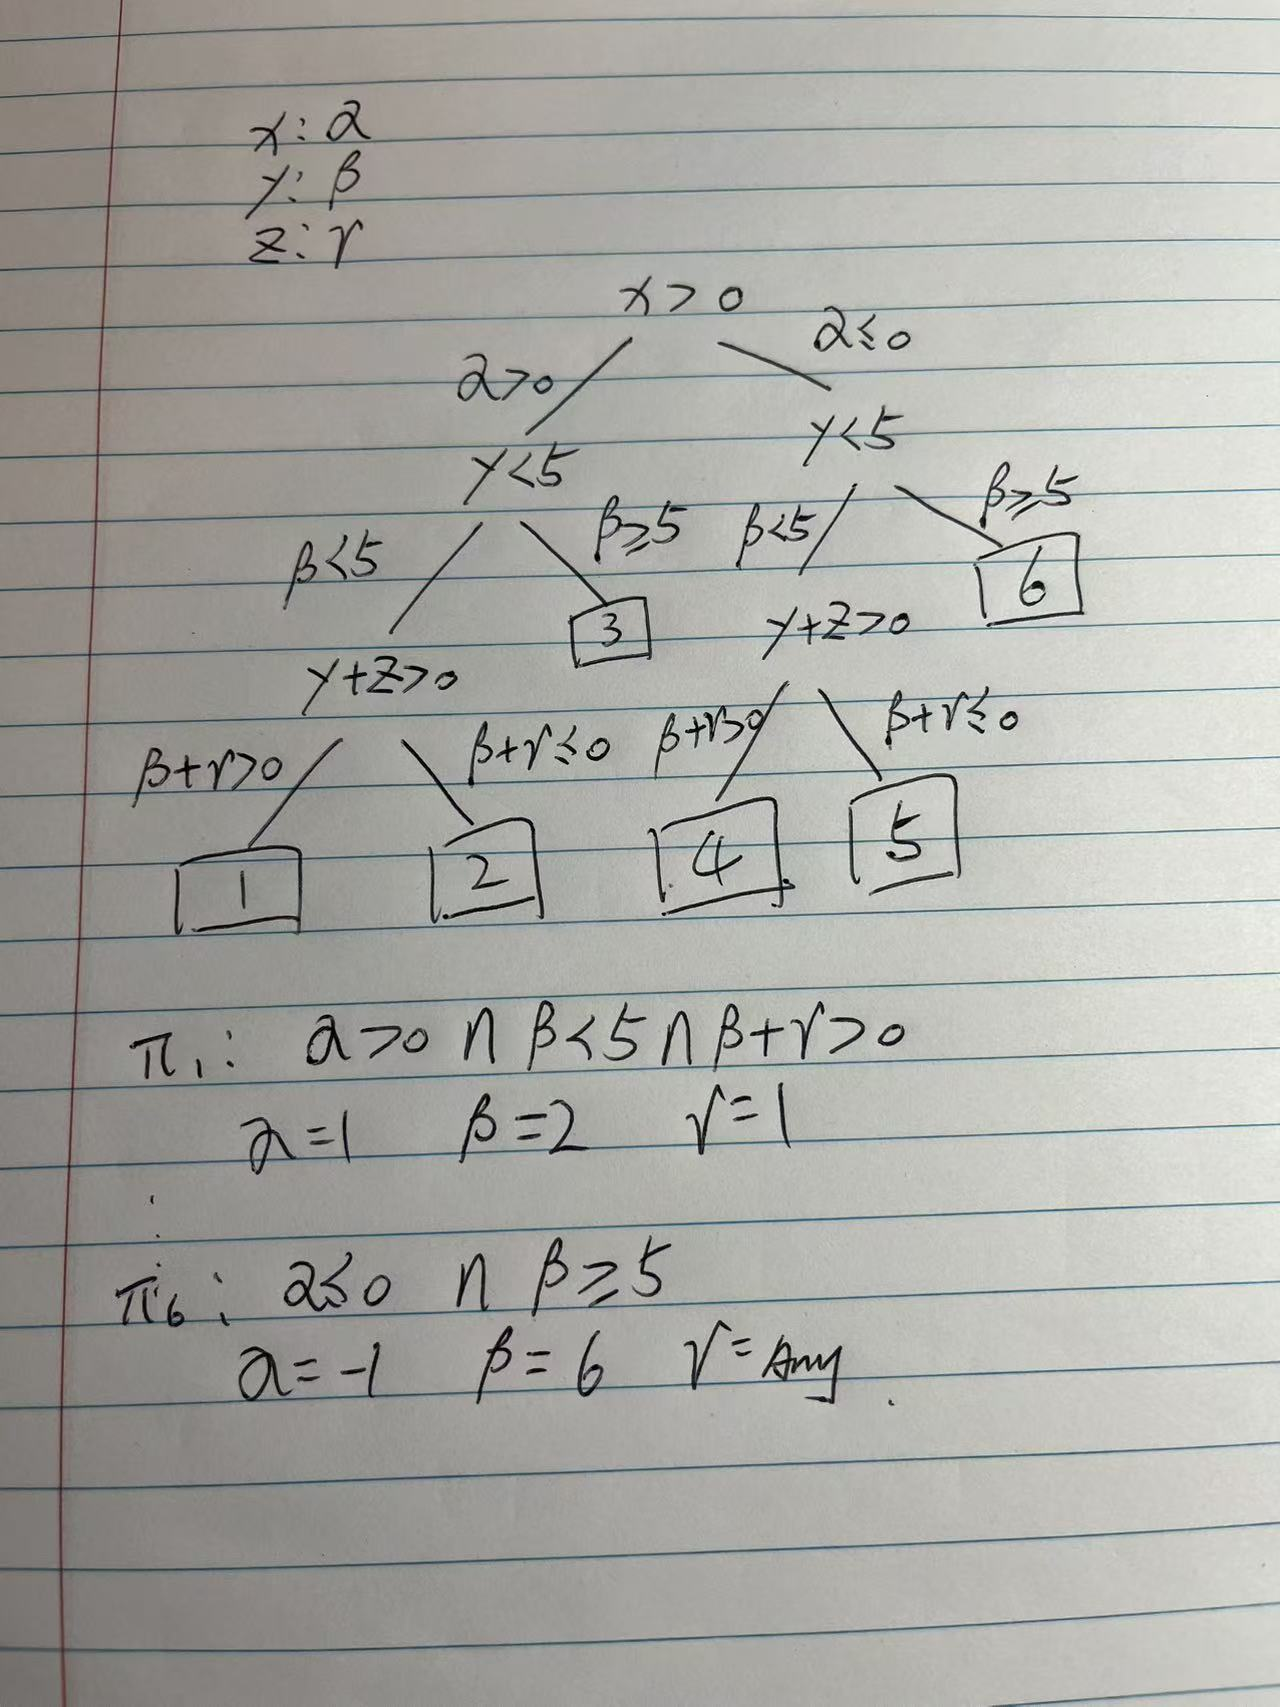 x: α
y: β
z: γ
x > 0
α ≤ 0
α>0
y<5
y<5
β≥5
β<5
β≥5
β<5
6
3
y+z>0
y+z>0
β+γ>0
β+γ≤0
β+γ>0
β+γ≤0
1
2
4
5
π₁: α>0 ∩ β<5 ∩ β+γ>0
α=1 β=2 γ=1
⋮
π₆: α≤0 ∩ β≥5
α=-1 β=6 γ=Any.